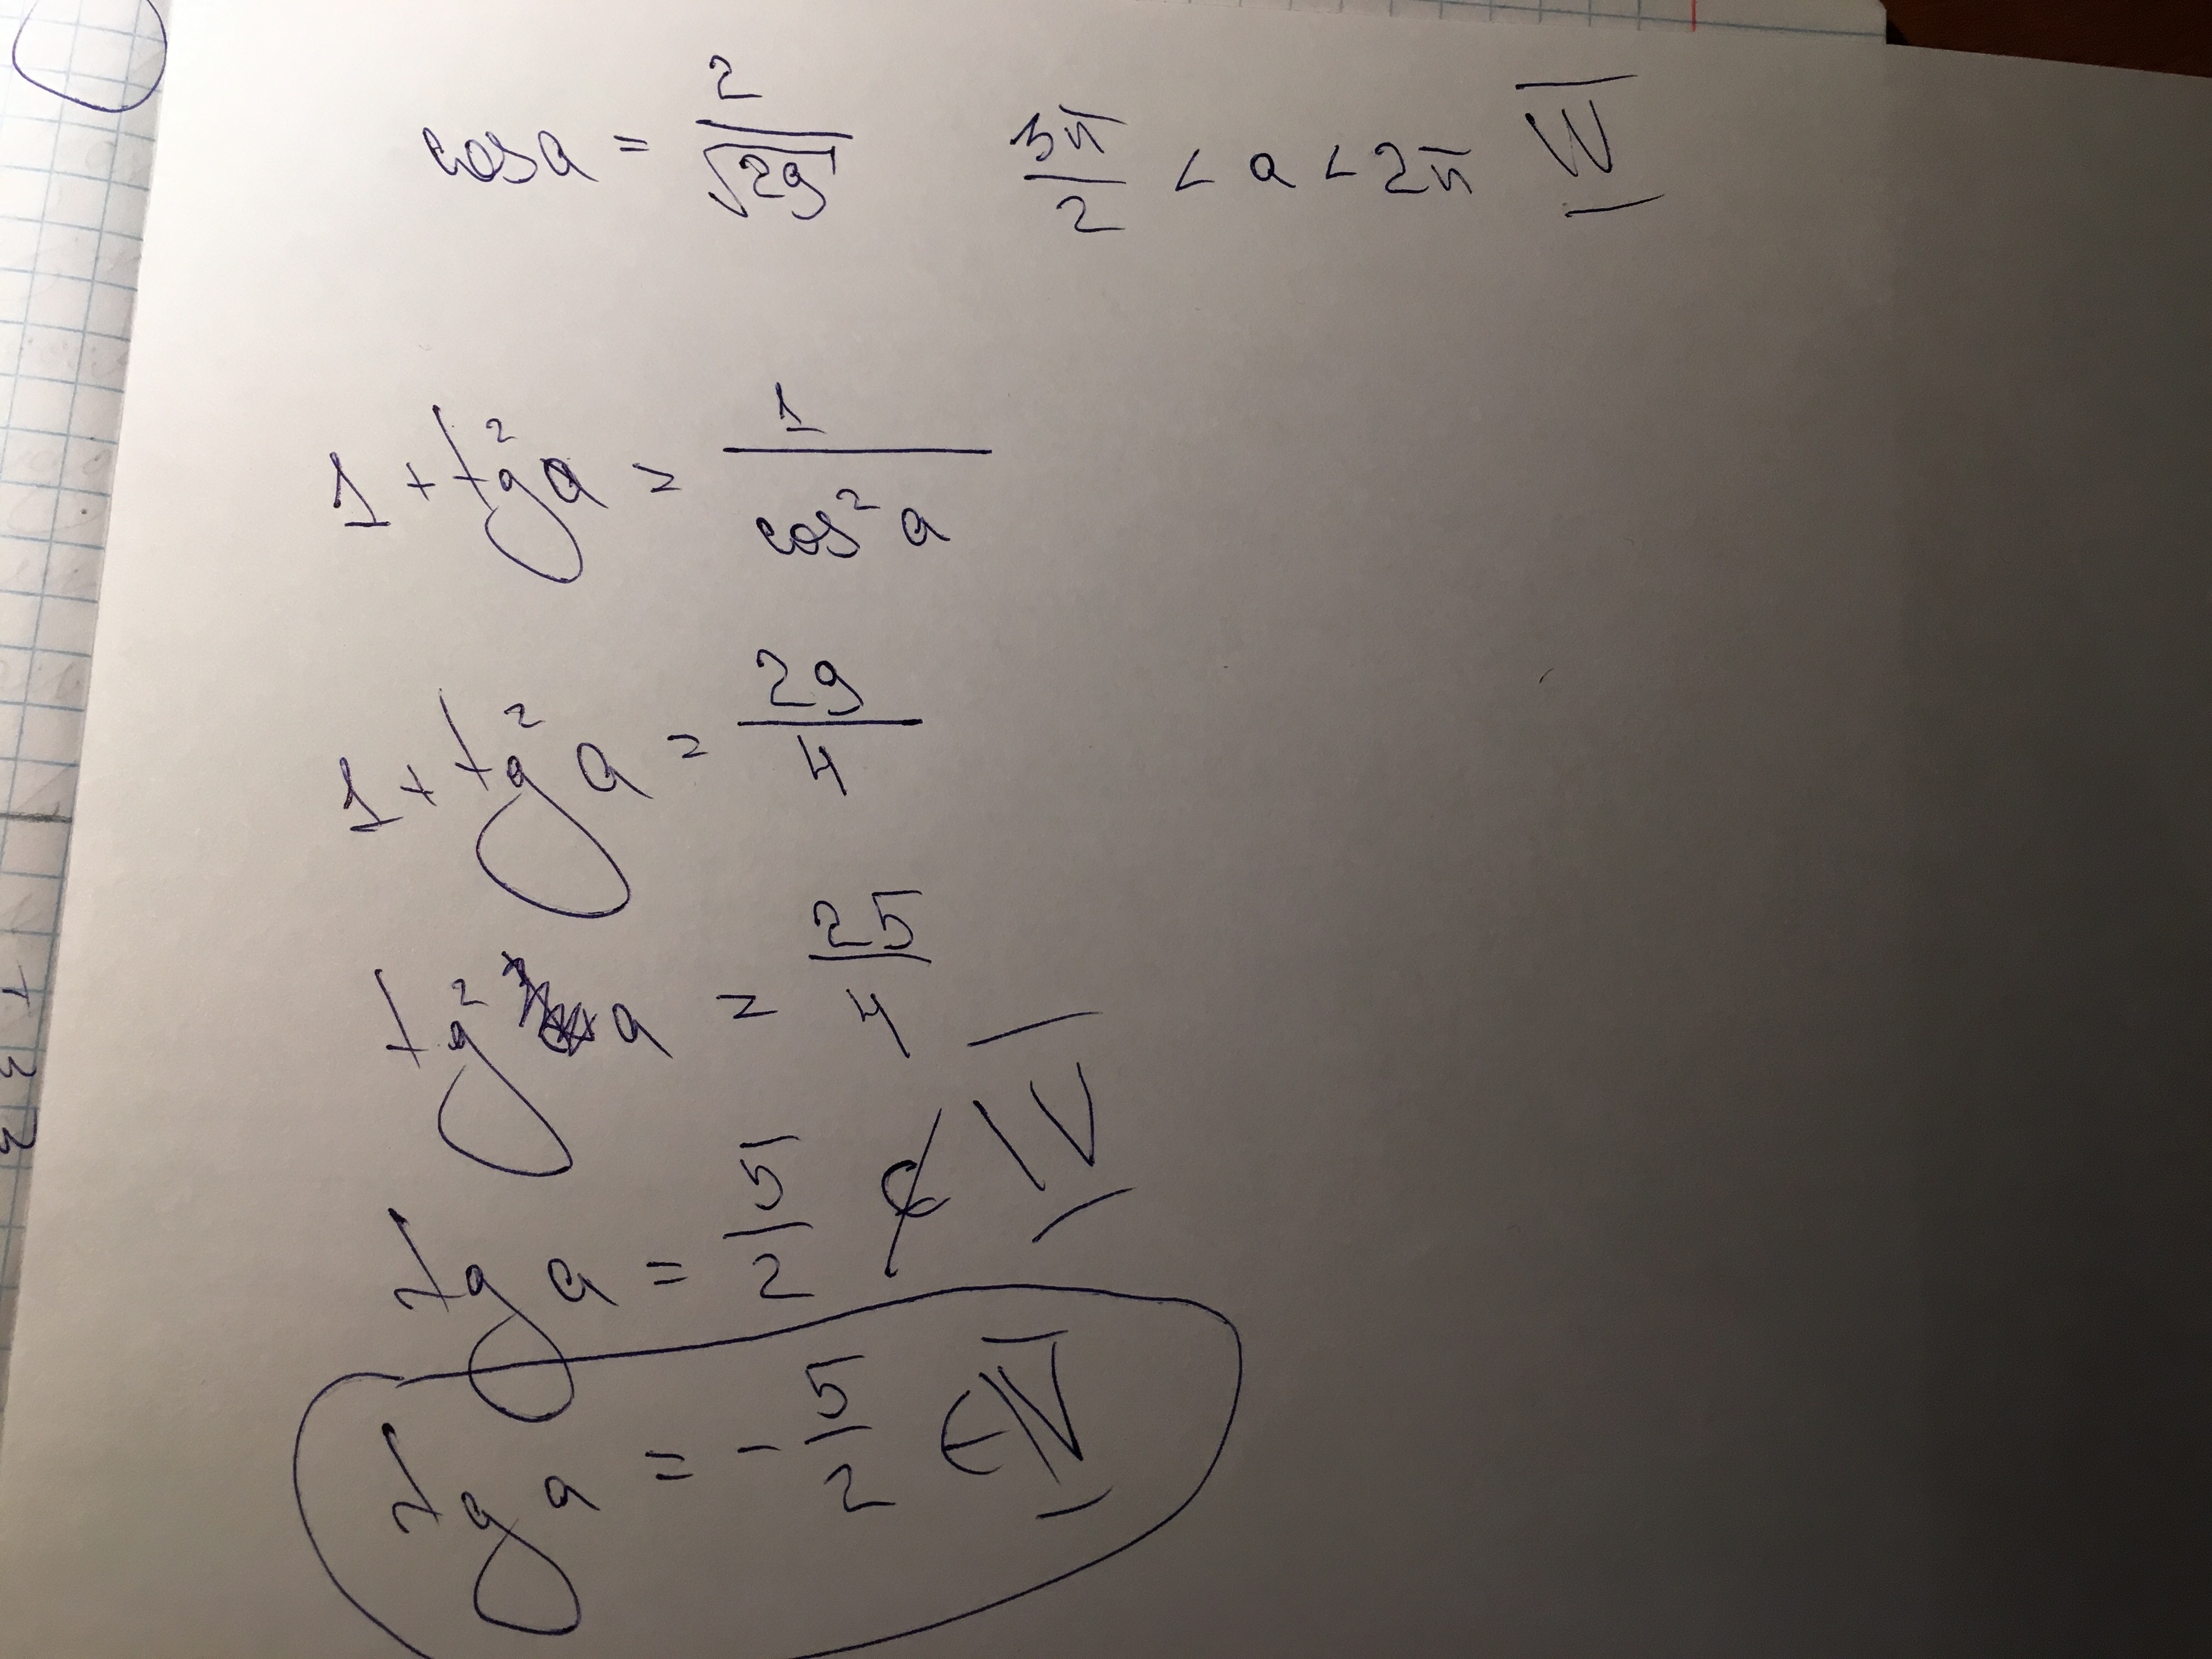 cos a = 2/√29 3π/2 < a < 2π IV
1 + tg² a = 1/cos² a
1 + tg² a = 29/4
tg² a = 25/4
tg a = 5/2 ∉ IV
tg a = - 5/2 ∈ IV